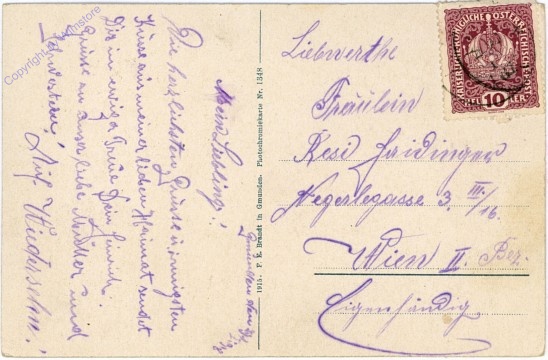 Mein Liebling!
Gmunden den
Die herzlichsten Grüsse u. innigsten
Küsse aus meiner lieben Heimat sendet
Dir in ewiger Treue Dein Heinrich.
Grüsse an unsere liebe Mutter und
Schwestern!
Auf Wiedersehn!
1915. P. E. Brandt in Gmunden. Photochromiekarte Nr. 1348
Liebwerthe
Fräulein
Resi Haidinger
Negerlegasse 3 III/16.
Wien II. Bez.
Eigenhändig
KAISERLICHE KÖNIGLICHE ÖSTERREICHISCHE POST
10
HELLER